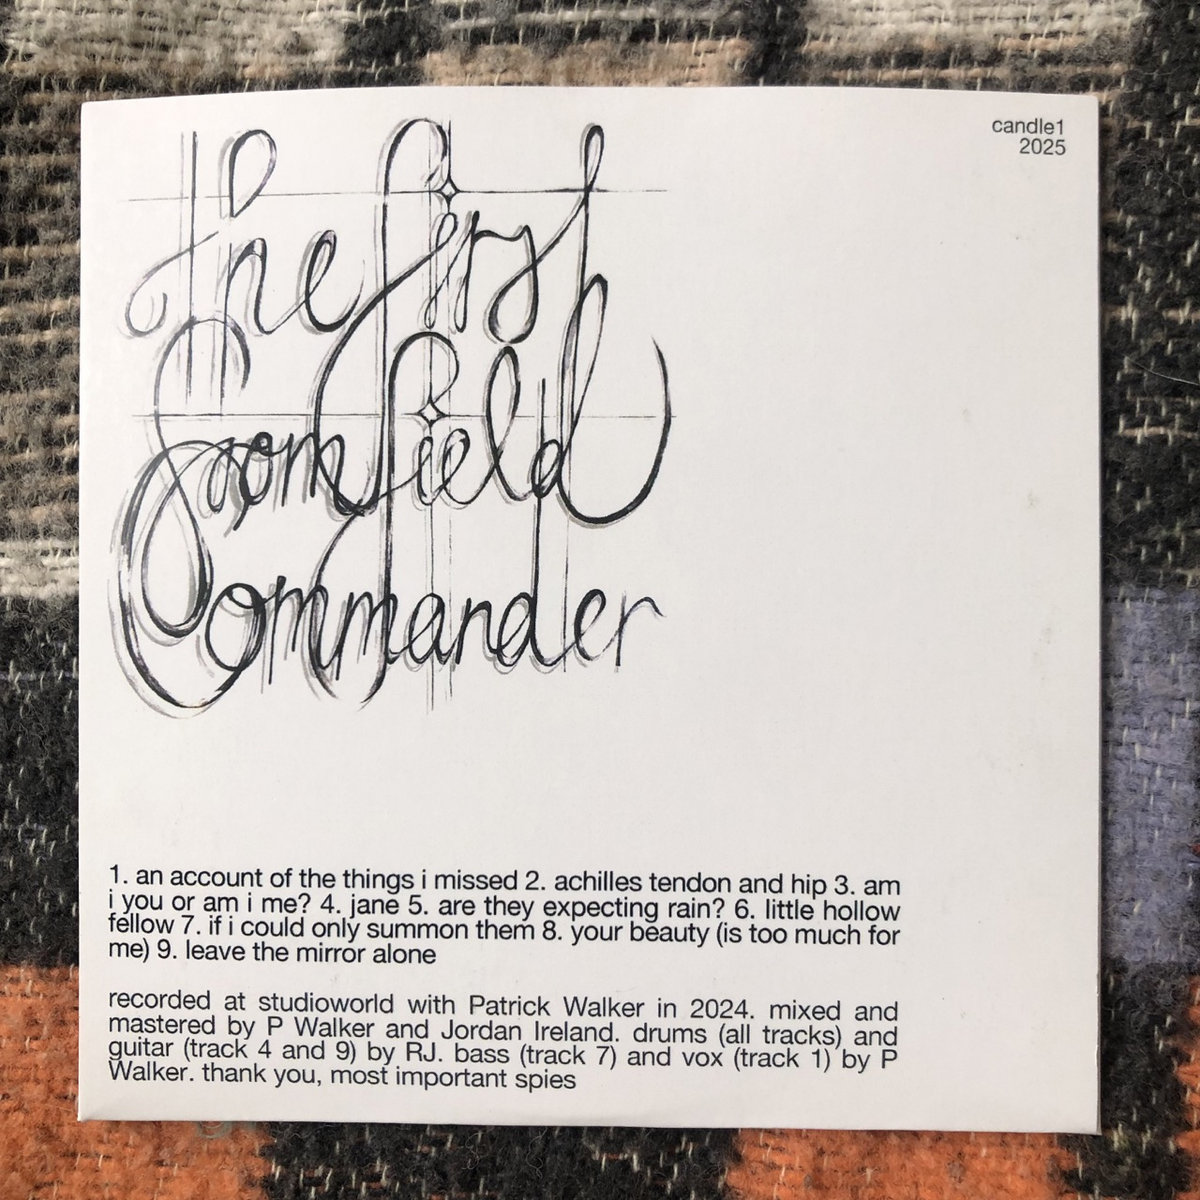 the first
from field
Commander
candle1
2025
1. an account of the things i missed 2. achilles tendon and hip 3. am
i you or am i me? 4. jane 5. are they expecting rain? 6. little hollow
fellow 7. if i could only summon them 8. your beauty (is too much for
me) 9. leave the mirror alone
recorded at studioworld with Patrick Walker in 2024. mixed and
mastered by P Walker and Jordan Ireland. drums (all tracks) and
guitar (track 4 and 9) by RJ. bass (track 7) and vox (track 1) by P
Walker. thank you, most important spies